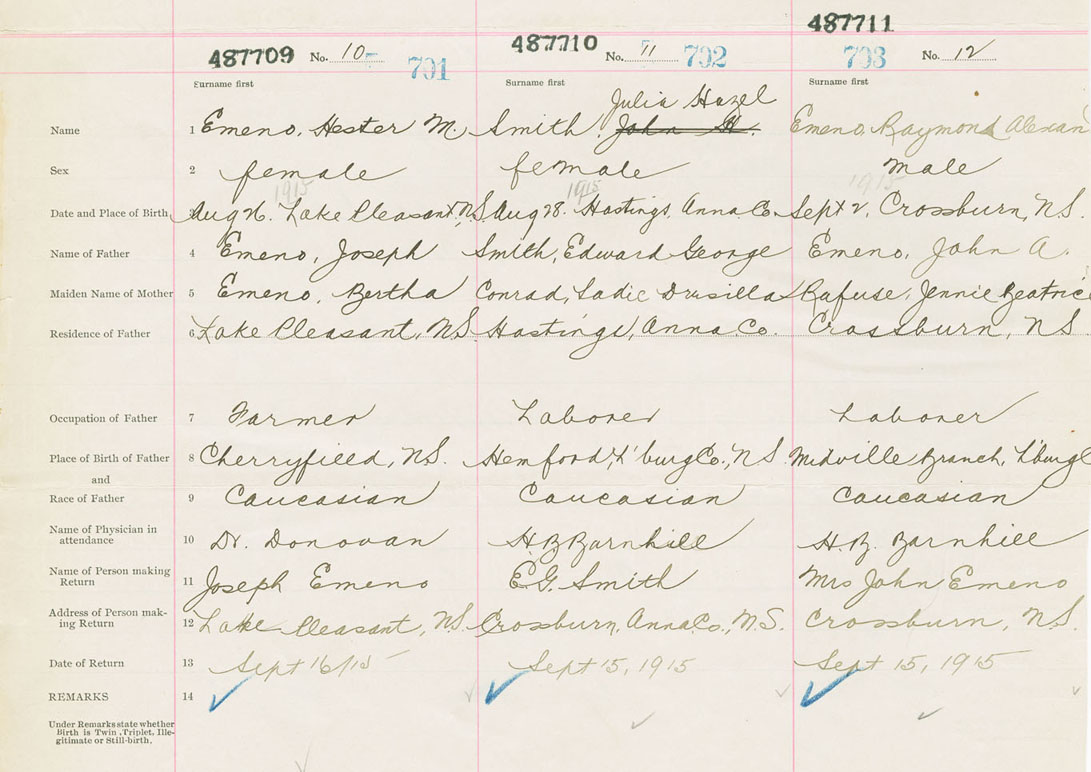 487709 No. 10 701 487710 No. 11 702 487711 703 No. 12
Surname first Surname first Surname first
Julia Hazel
Name 1 Emeno, Hester M. Smith, John H. Emeno, Raymond Alexan
Sex 2 female female Male
1915 1915 1915
Date and Place of Birth 3 Aug 26. Lake Pleasant, N.S. Aug 28. Hastings, Anna Co. Sept 2, Crossburn, N.S.
Name of Father 4 Emeno, Joseph Smith, Edward George Emeno, John A.
Maiden Name of Mother 5 Emeno, Bertha Conrad, Sadie Drusilla Rafuse, Jennie Beatrice
Residence of Father 6 Lake Pleasant, N.S. Hastings, Anna Co. Crossburn, N.S
Occupation of Father 7 Farmer Laborer Laborer
Place of Birth of Father 8 Cherryfield, N.S. Hemford, L'burg Co., N.S. Midville Branch, L'burg C
and
Race of Father 9 Caucasian Caucasian Caucasian
Name of Physician in
attendance 10 Dr. Donovan H B Barnhill H. B. Barnhill
Name of Person making
Return 11 Joseph Emeno E.G. Smith Mrs John Emeno
Address of Person mak-
ing Return 12 Lake Pleasant, N.S. Crossburn, Anna Co., N.S. Crossburn, N.S.
Date of Return 13 Sept 16/15 Sept 15, 1915 Sept 15, 1915
REMARKS 14
Under Remarks state whether
Birth is Twin, Triplet, Ille-
gitimate or Still-birth.